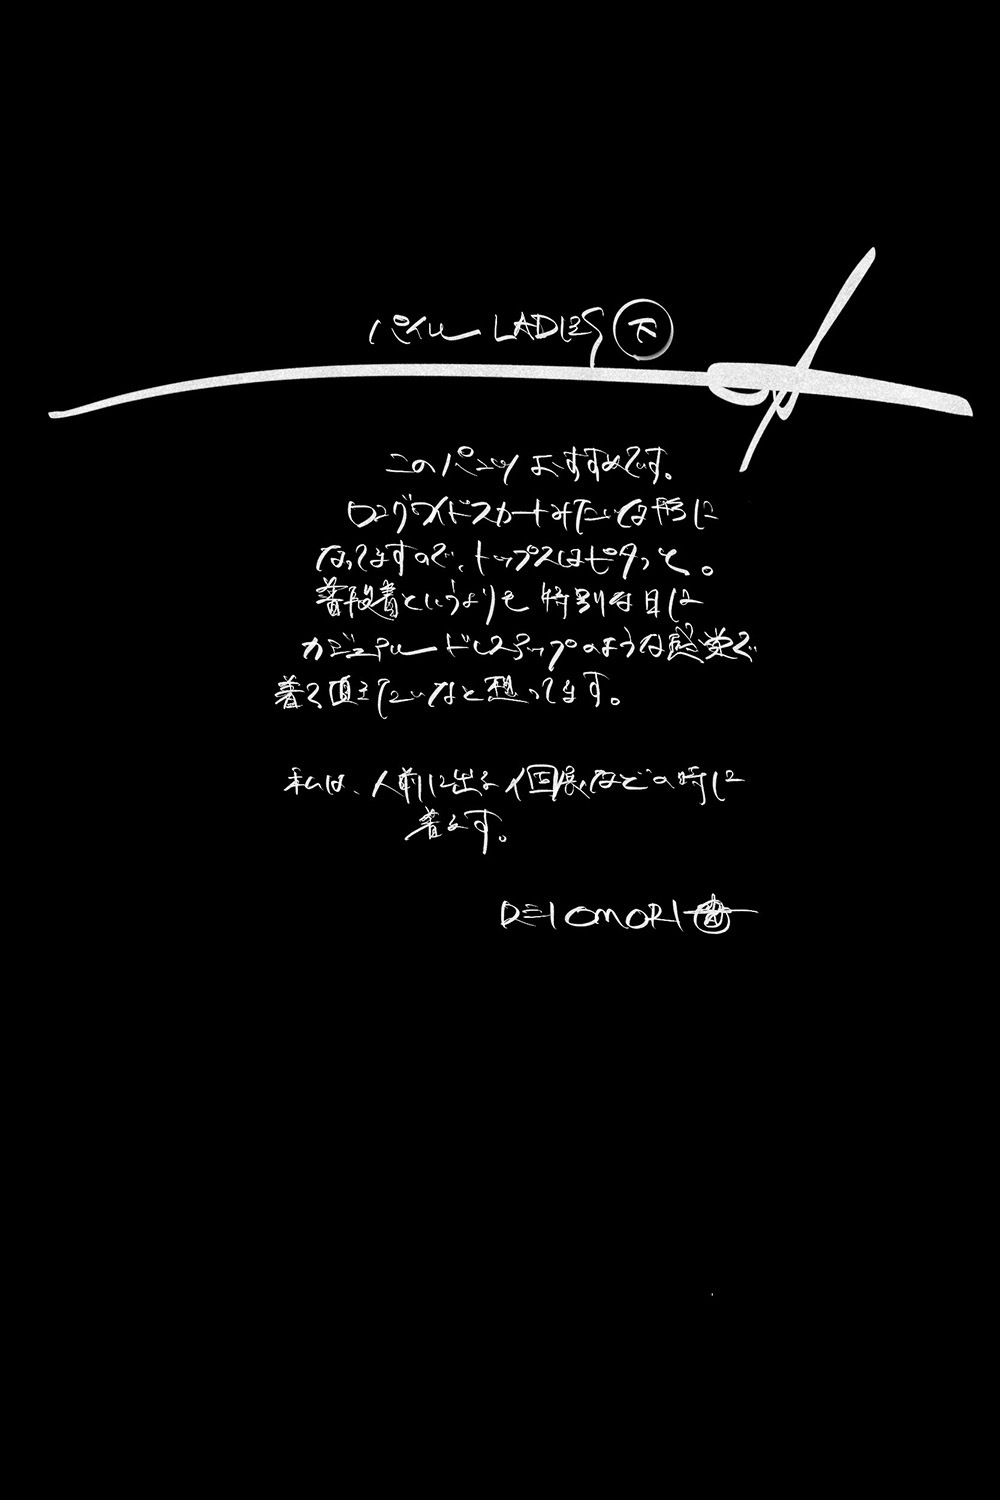 パイル LADIES 下
このパンツおすすめです。
ロングワイドスカートみたいな形に
なってますので、トップスはピタっと。
普段着というよりも特別な日に
カジュアルードレスアップのような感覚で
着て頂きたいなと想ってます。
私は、人前に出る個展などの時に
着ます。
REI OMORI